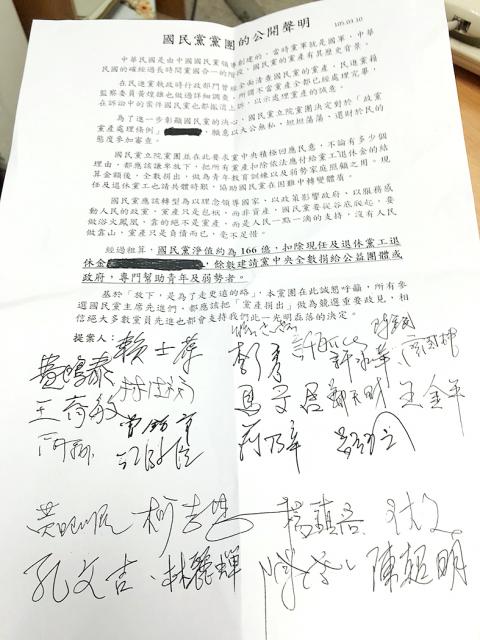 國民黨黨團的公開聲明
105.03.10
中華民國是由中國國民黨領導創建的，當時黨軍就是國軍，中華
民國的確經過長時間黨國合一的階段，國民黨的黨產有其歷史背景。
在民進黨執政時行政部門曾經全面清查國民黨的黨產，民進黨籍
監察委員黃煌雄也做過詳細調查，所謂不當黨產全部已經處理完畢，
在訴訟中的當係國民黨也都撤消上訴，以示處理黨產的誠意。
為了進一步彰顯國民黨的決心，國民黨立院黨團決定對於「政黨
黨產處理條例」，願意以大公無私、坦坦蕩蕩、還財於民的
態度參加審查。
國民黨立院黨團並在此要求黨中央積極回應民意，不論有多少個
理由，都應該謙卑放下，把所有黨產扣除依法應付給黨工退休金的結
算金額後，全數捐出，做為青年教育訓練以及弱勢家庭照顧之用。現
任及退休黨工也請共體時艱，協助國民黨在困難中轉變體質。
國民黨應該轉型為以理念領導國家，以政策影響政府、以服務感
動人民的政黨，黨產只是包袱，而非資產，國民黨要從谷底爬起，要
做浴火鳳凰，靠的絕不是黨產，而是人民一點一滴的支持，沒有人民
做靠山，黨產只是負債而已，毫不足惜。
經過粗算，國民黨淨值約為 166 億，扣除現任及退休黨工退
休金，餘數建請黨中央全數捐給公益團體或
政府，專門幫助青年及弱勢者。
基於「放下，是為了走更遠的路」，本黨團在此誠懇呼籲，所有參
選國民黨主席先進們，都應該把「黨產捐出」做為競選重要政見，相
信絕大多數黨員先進也都會支持我們此一光明磊落的決定。
提案人：賴士葆
費鴻泰
王育敏
曾銘宗
許毓仁
鄭天財
王金平
蔣乃辛
黃昭順
柯志恩
楊鎮浯
孔文吉
林麗蟬
陳超明